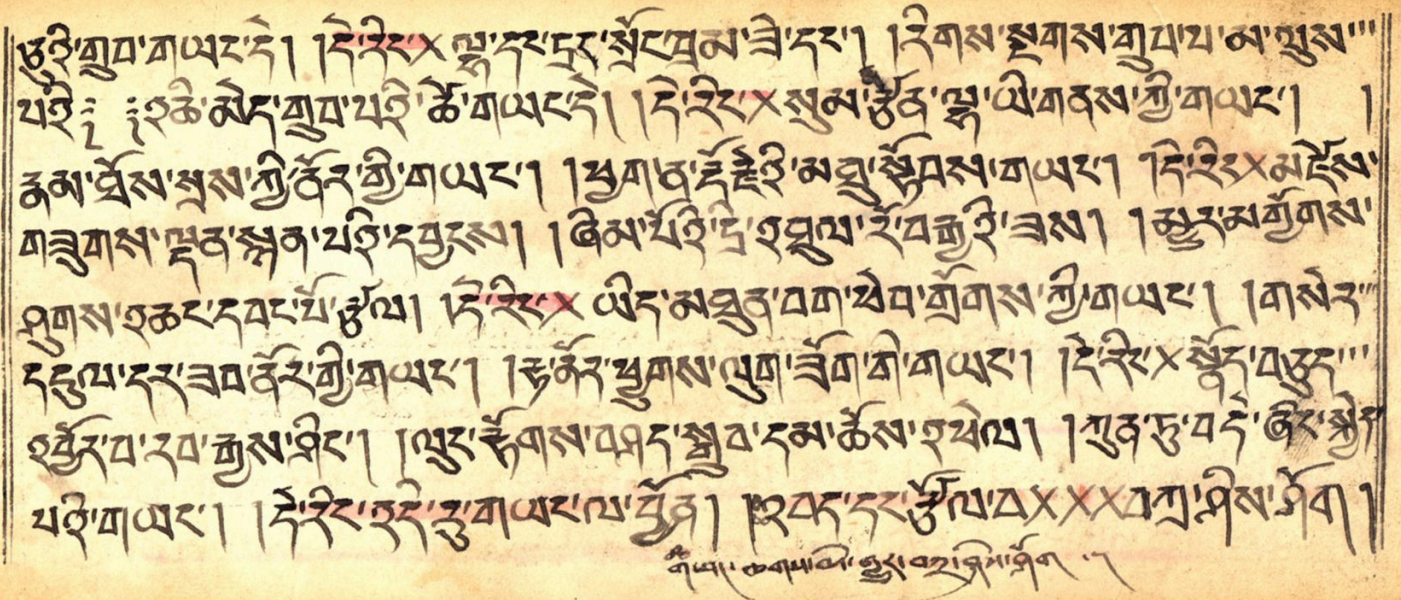 ཅུའི་གྲུབ་གཡང་དེ། །དེ་རིང་× ལྷ་དང་དྲང་སྲོང་ཁྲིམ་ཟེ་དང་། །རིགས་སྔགས་གྲུབ་པ་མ་ལུས་
པའི༔ ༔འཆི་མེད་གྲུབ་པའི་ཚེ་གཡང་དེ། །དེ་རིང་×སུམ་ཅུན་ལྷ་ཡི་གནས་ཀྱི་གཡང་། །
རྣམ་ཐོས་སྲས་ཀྱི་ནོར་གྱི་གཡང་། །ཕྱག་ན་རྡོ་རྗེའི་མཐུ་སྟོབས་གཡང་། །དེ་རིང་×མཛེས་
གཟུགས་ལྡན་སྙན་པའི་དབྱངས། །ཞིམ་པོའི་དྲི་འཐུལ་རོ་བརྒྱའི་ཟས། །མྱུར་མགྱོགས་
ཤུགས་འཆང་དབང་པོ་རྩལ། །དེ་རིང་× ཡིད་མཐུན་བག་ཕེབ་གྲོགས་ཀྱི་གཡང་། །གསེར་
དངུལ་དར་ཟབ་ནོར་གྱི་གཡང་། །རྟ་ནོར་ཕྱུགས་ལུག་ཟོག་གི་གཡང་། །དེ་རིང་×སྣོད་བཅུད་
འབྱོར་བ་རབ་རྒྱས་ཤིང་། །ལུང་རྟོགས་བཤད་སྒྲུབ་དམ་ཆོས་འཕེལ། །ཀུན་ཏུ་བདེ་ཞིང་སྐྱིད་
པའི་གཡང་། །དེ་རིང་འདི་རུ་གཡང་ལ་བྱོན། །འབད་དང་རྩོལ་བ×××བཀྲ་ཤིས་ཤོག །